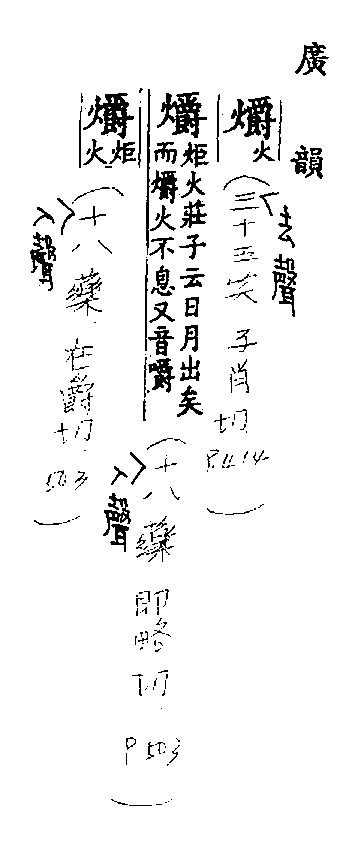 廣韻
爝火
(去聲 三十五笑 子肖切 P.414)
爝炬火莊子云日月出矣
而爝火不息又音嚼
(入聲 十八藥 即略切 P503)
爝炬火
(入聲 十八藥 在爵切 503)